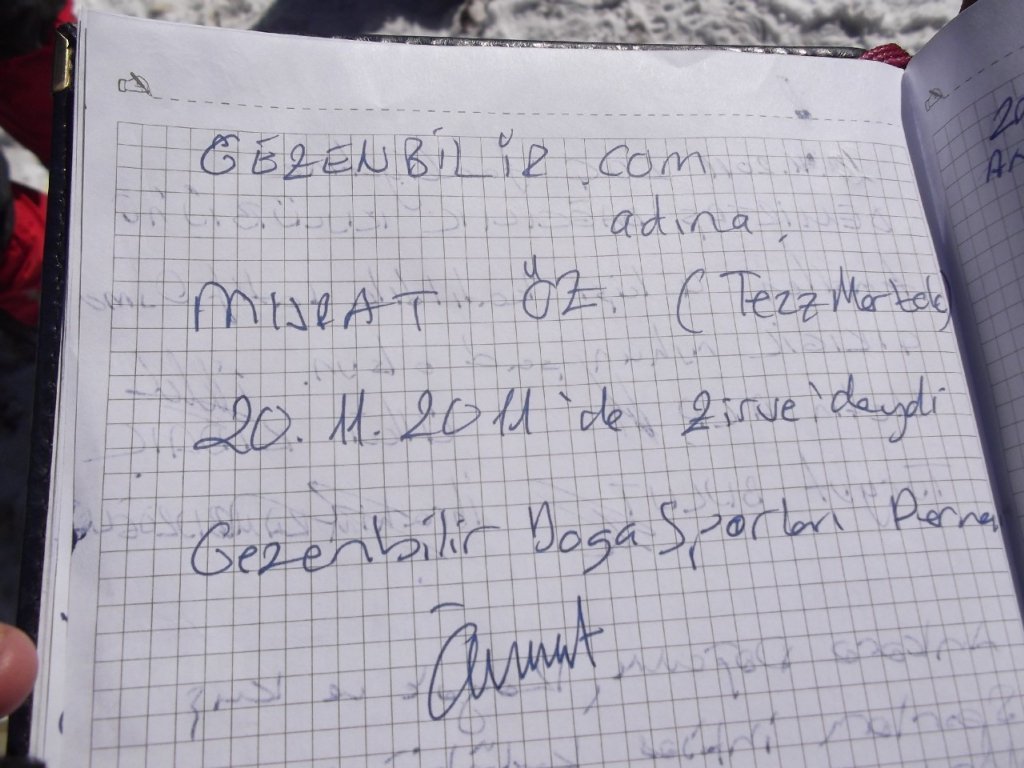 GEZENBİLİR.COM
adına
MURAT ÖZ (TezzMartek)
20.11.2011'de zirve'deydi
Gezenbilir Doga Sporları
20